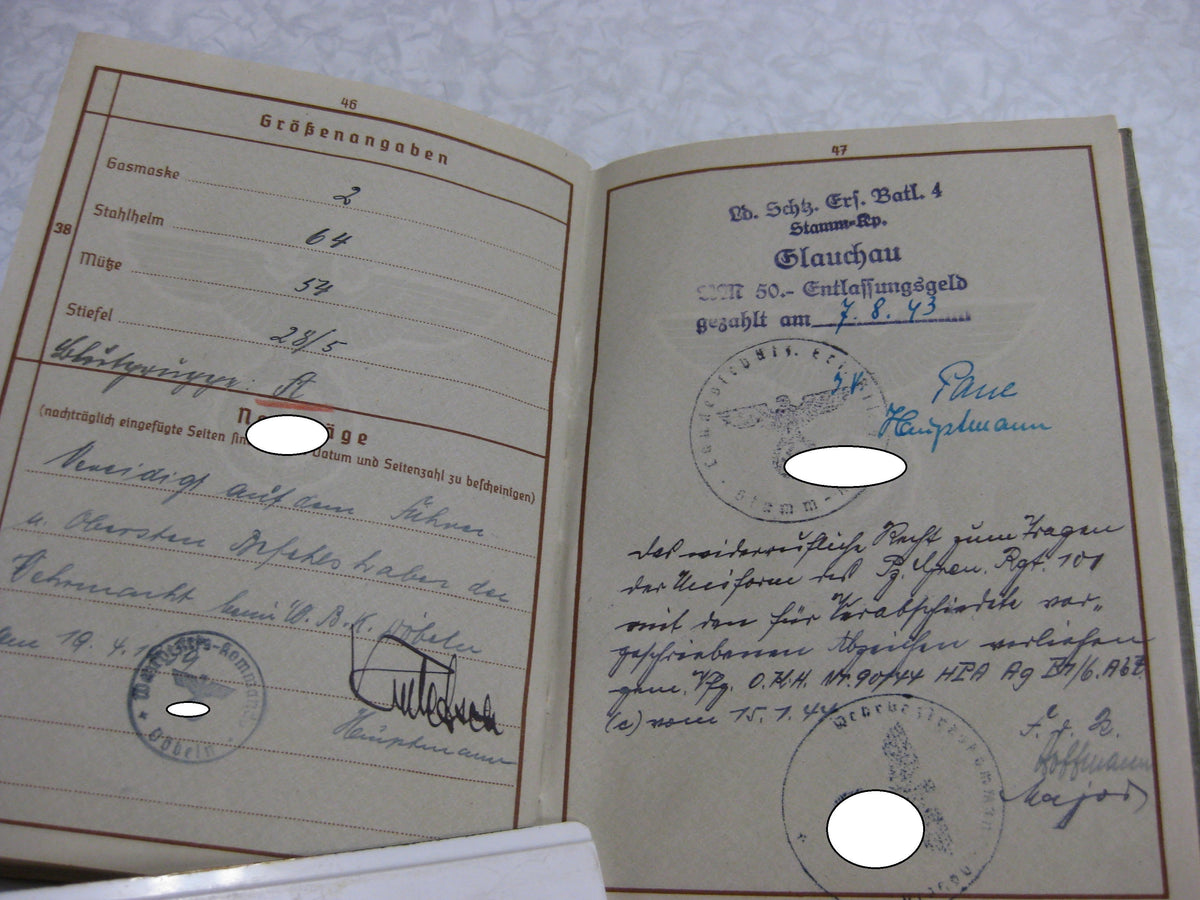 46
Größenangaben
38
Gasmaske 2
Stahlhelm 64
Mütze 54
Stiefel 28/5
Blutgruppe: A
(nachträglich eingefügte Seiten sin Datum und Seitenzahl zu bescheinigen)
Vereidigt auf den Führer
u. Obersten Befehlshaber der
Wehrmacht beim W. B. K. Döbeln
am 19. 4.
Hauptmann
Döbeln
47
Ld. Schtz. Ers. Batl. 4
Stamm-Kp.
Glauchau
RM 50.- Entlassungsgeld
gezahlt am 7. 8. 43
Hauptmann
Das widerrufliche Recht zum Tragen
der Uniform des Pz. Gren. Rgt. 101
mit den für Verabschiedete vor-
geschriebenen Abzeichen verliehen
gem. Vfg. O.K.H. Nr. 90/44 HPA Ag P1/6. Abt.
(c) vom 15. 1. 44
F. d. R.
Hoffmann
Major